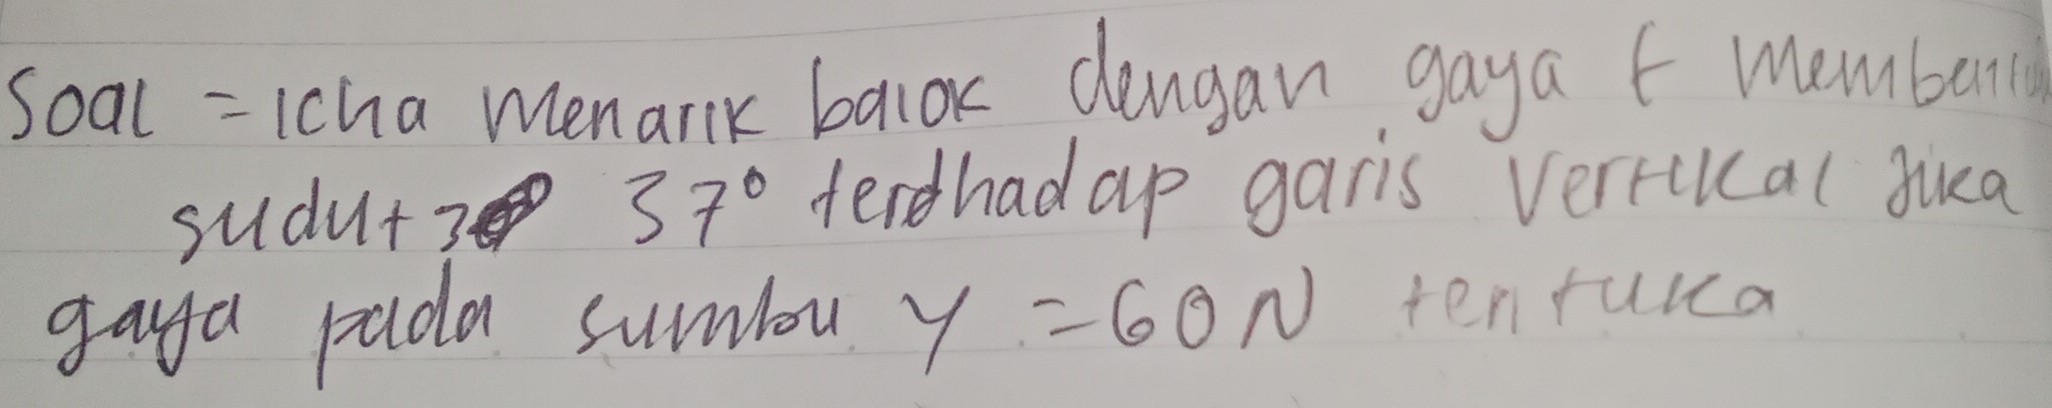 Soal = Icha menarik balok dengan gaya F membentuk
sudut 37° terdhadap garis vertikal jika
gaya pada sumbu y = 60 N tentuka